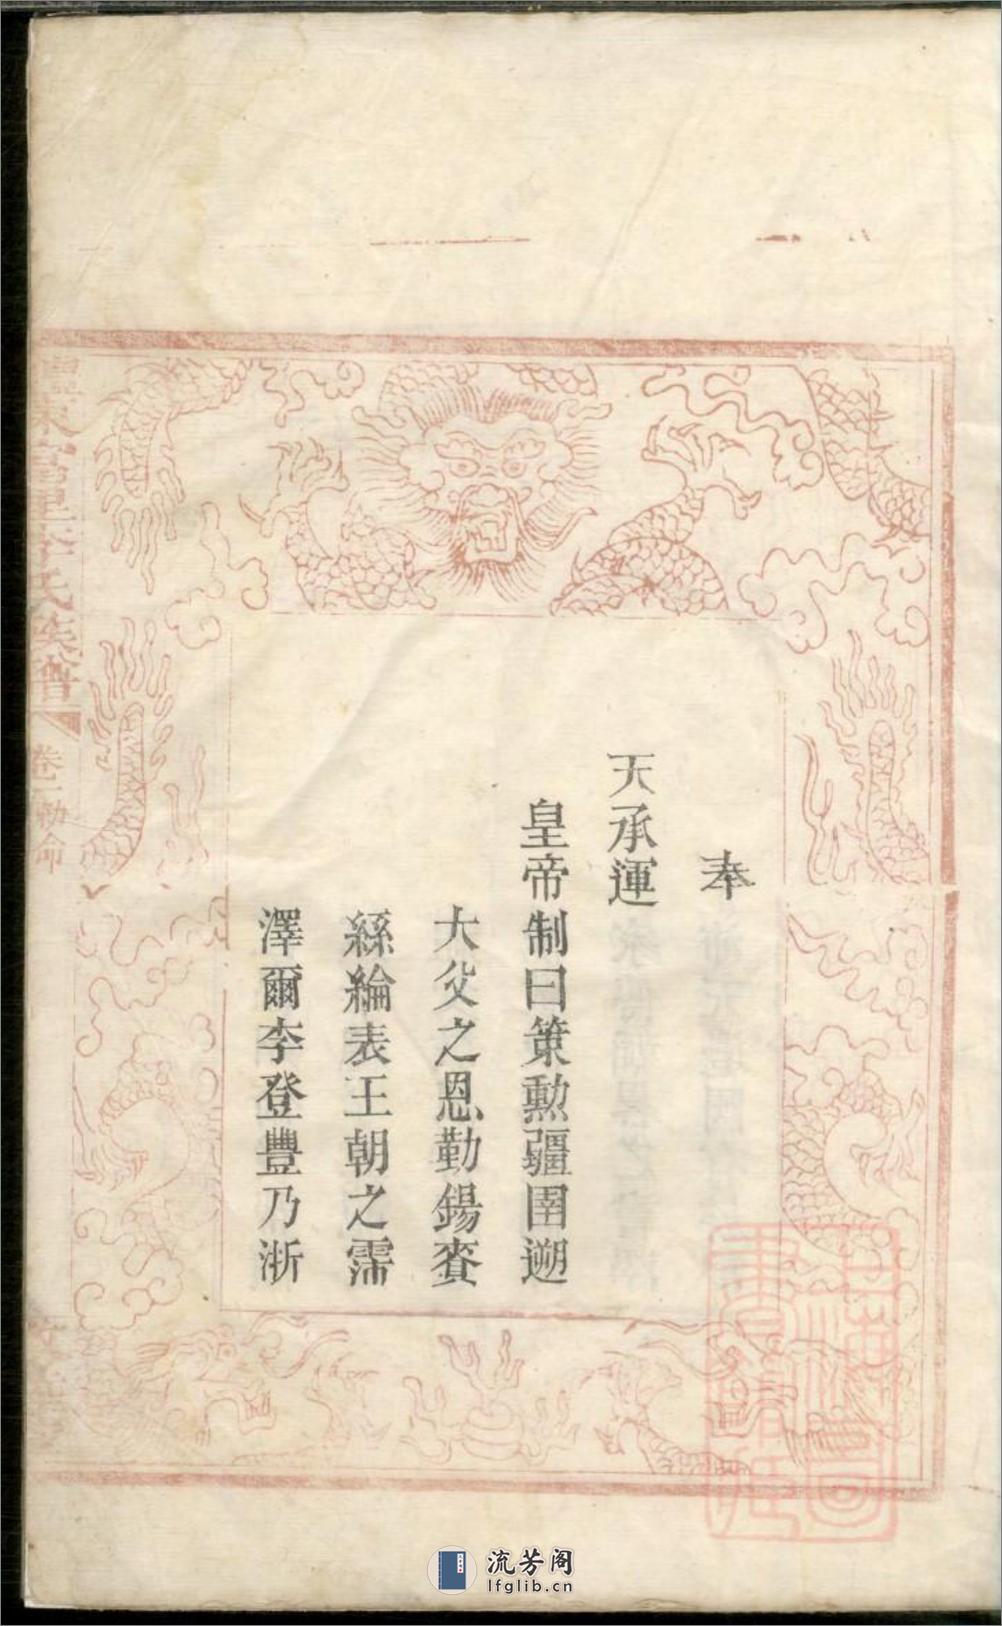 奉
天承運
皇帝制曰策勲疆圉遡
大父之恩勤錫賚
絲綸表王朝之霈
澤爾李登豐乃浙
李氏族譜
卷一勅命
流芳阁
lfglib.cn